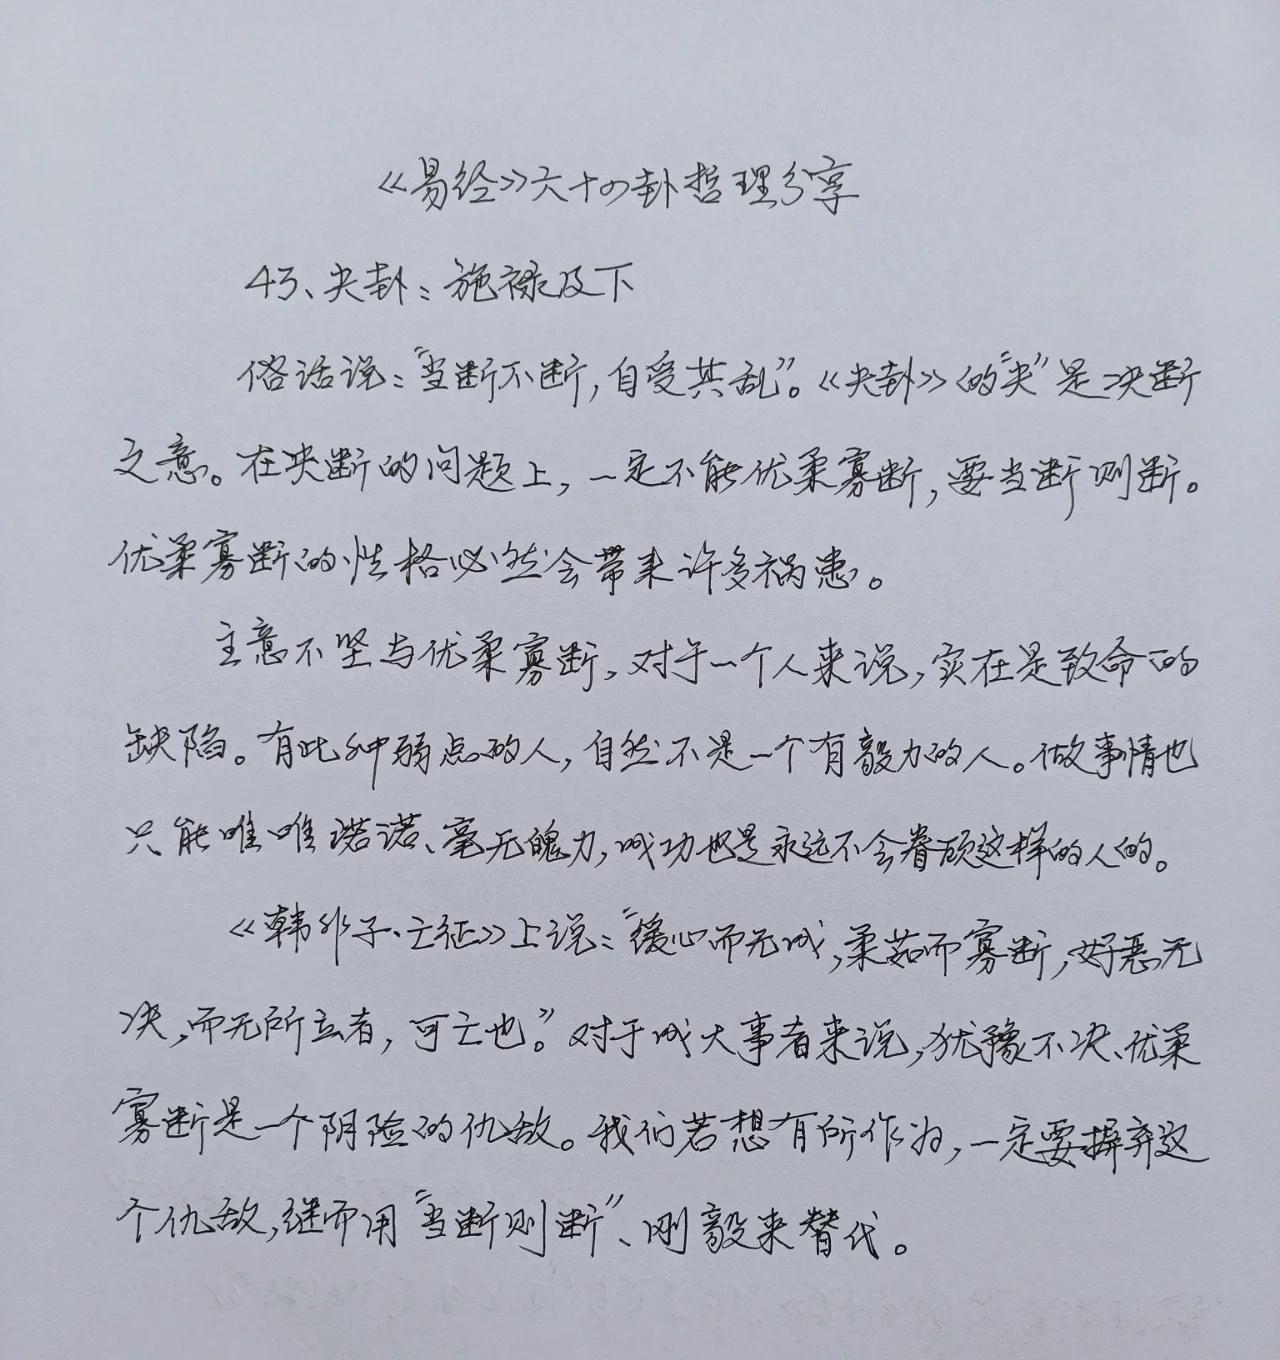 《易经》六十四卦哲理分享
43、夬卦：施禄及下
俗话说："当断不断，自受其乱"。《夬卦》的"夬"是决断
之意。在决断的问题上，一定不能优柔寡断，要当断则断。
优柔寡断的性格必然会带来许多祸患。
主意不坚与优柔寡断，对于一个人来说，实在是致命的
缺陷。有此种弱点的人，自然不是一个有毅力的人。做事情也
只能唯唯诺诺、毫无魄力，成功也是永远不会眷顾这样的人的。
《韩非子·亡征》上说："缓心而无成，柔茹而寡断，好恶无
决，而无所立者，可亡也。"对于成大事者来说，犹豫不决、优柔
寡断是一个阴险的仇敌。我们若想有所作为，一定要摒弃这
个仇敌，继而用"当断则断"、刚毅来替代。